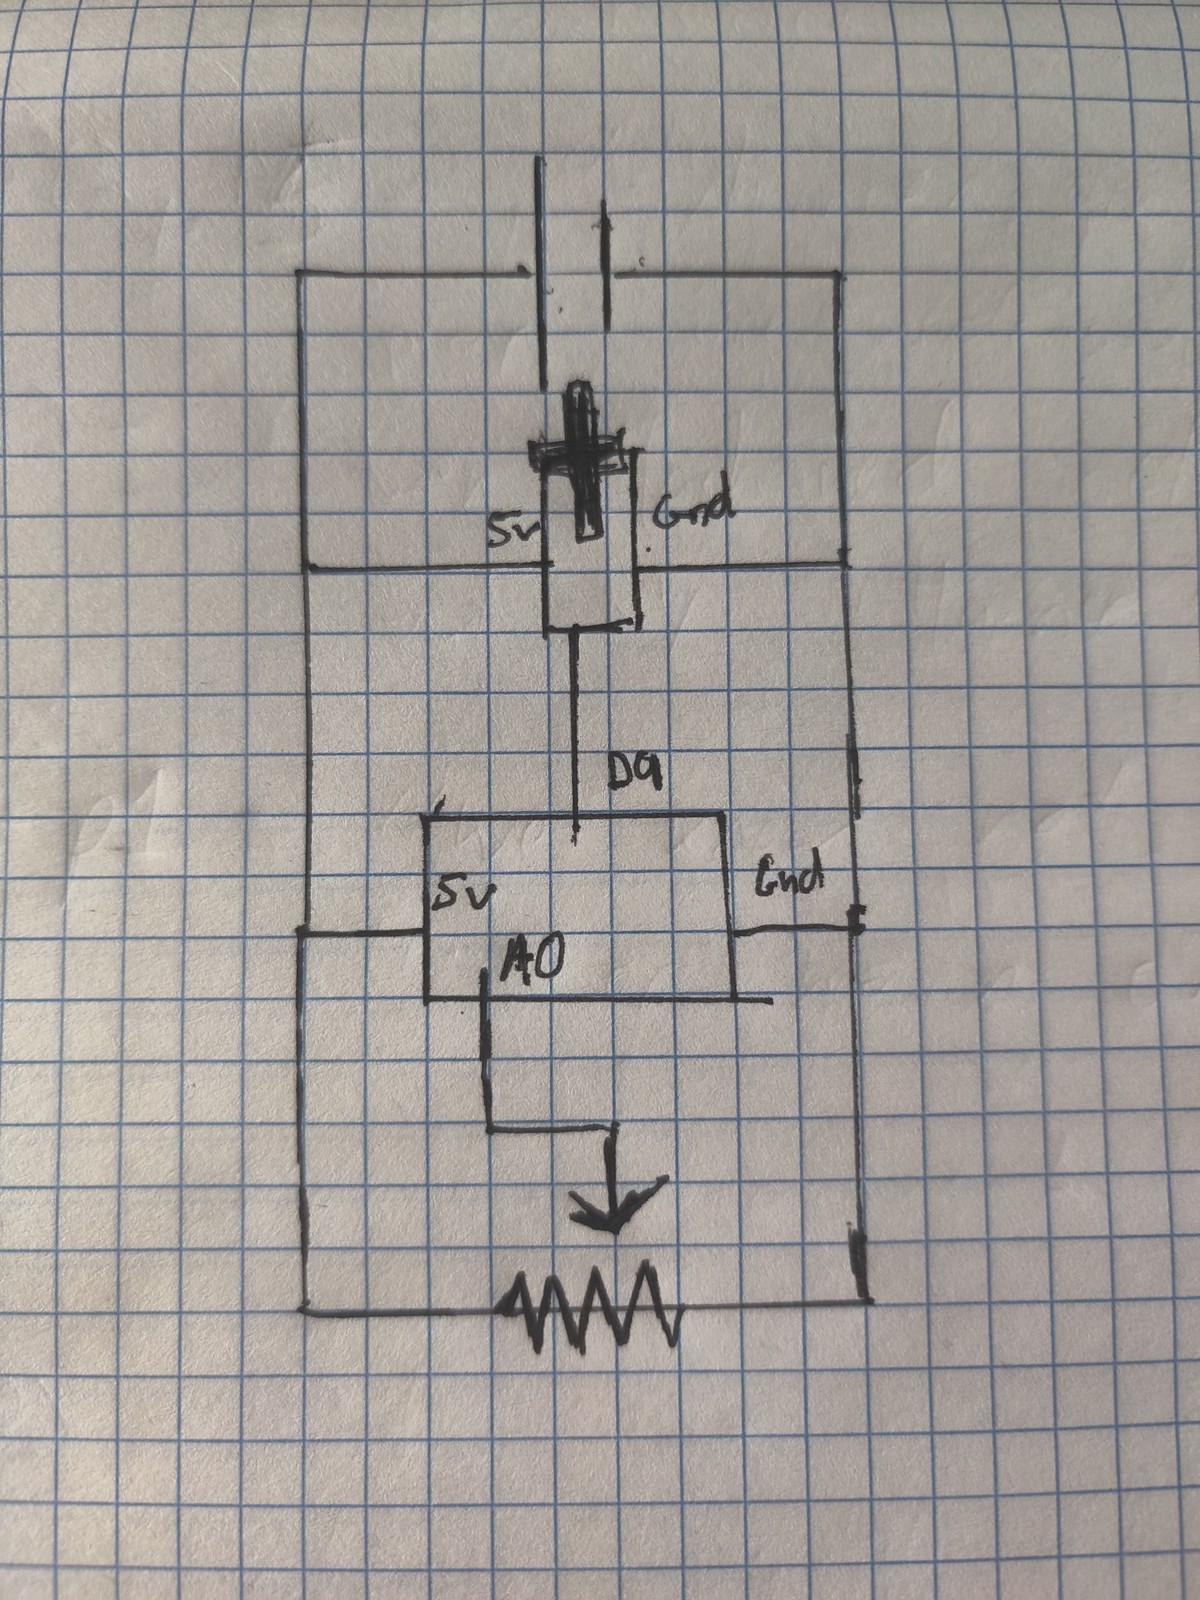 5v Gnd
D9
5v Gnd
A0